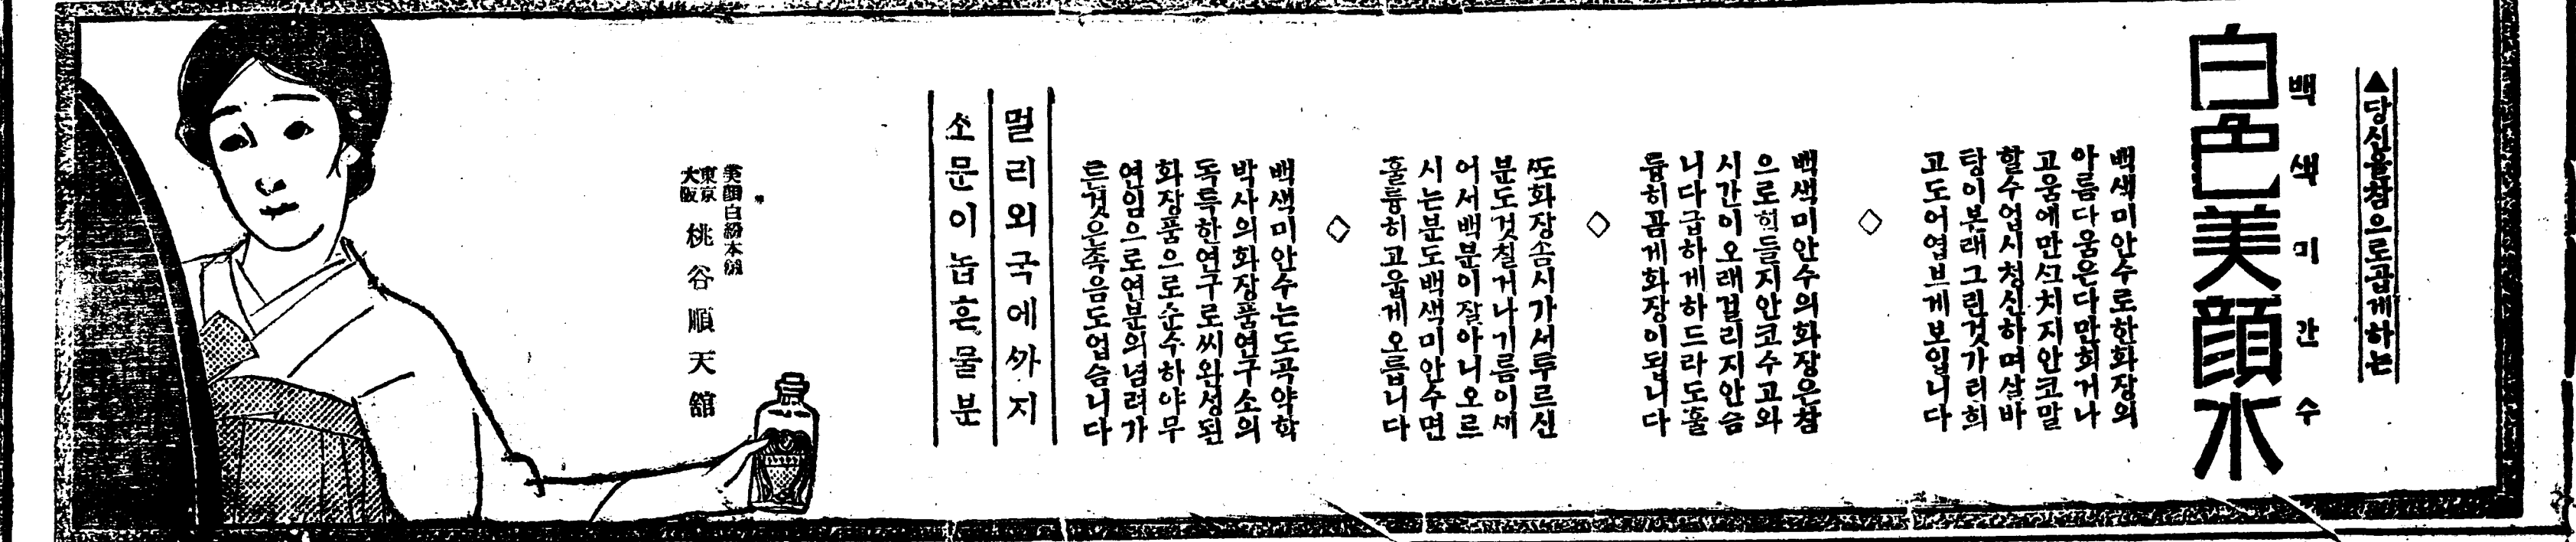 ▲당신을참으로곱게하는
백색미간수
白色美顔水
백색미안수로한화장의
아름다움은다만희거나
고움에만쓰치지안코말
할수업시청신하며살바
탕이본래그린것가리희
고도어엽브게보입니다
◇
백색미안수의화장은참
으로힘들지안코수고와
시간이오래걸리지안슴
니다급하게하드라도훌
륭히곱게화장이됩니다
◇
ᄯᅩ화장솜시가서투르신
분도것칠거나기름이세
어서백분이잘아니오르
시는분도백색미안수면
훌륭히고웁게오릅니다
◇
백색미안수는도곡약학
박사의화장품연구소의
독특한연구로써완성된
화장품으로순수하야무
연임으로연분의념려가
튼것은족음도업슴니다
멀리외국에ᄭᅡ지
소문이놉흔물분
美顔白粉本舗
東京
大阪
桃谷順天舘